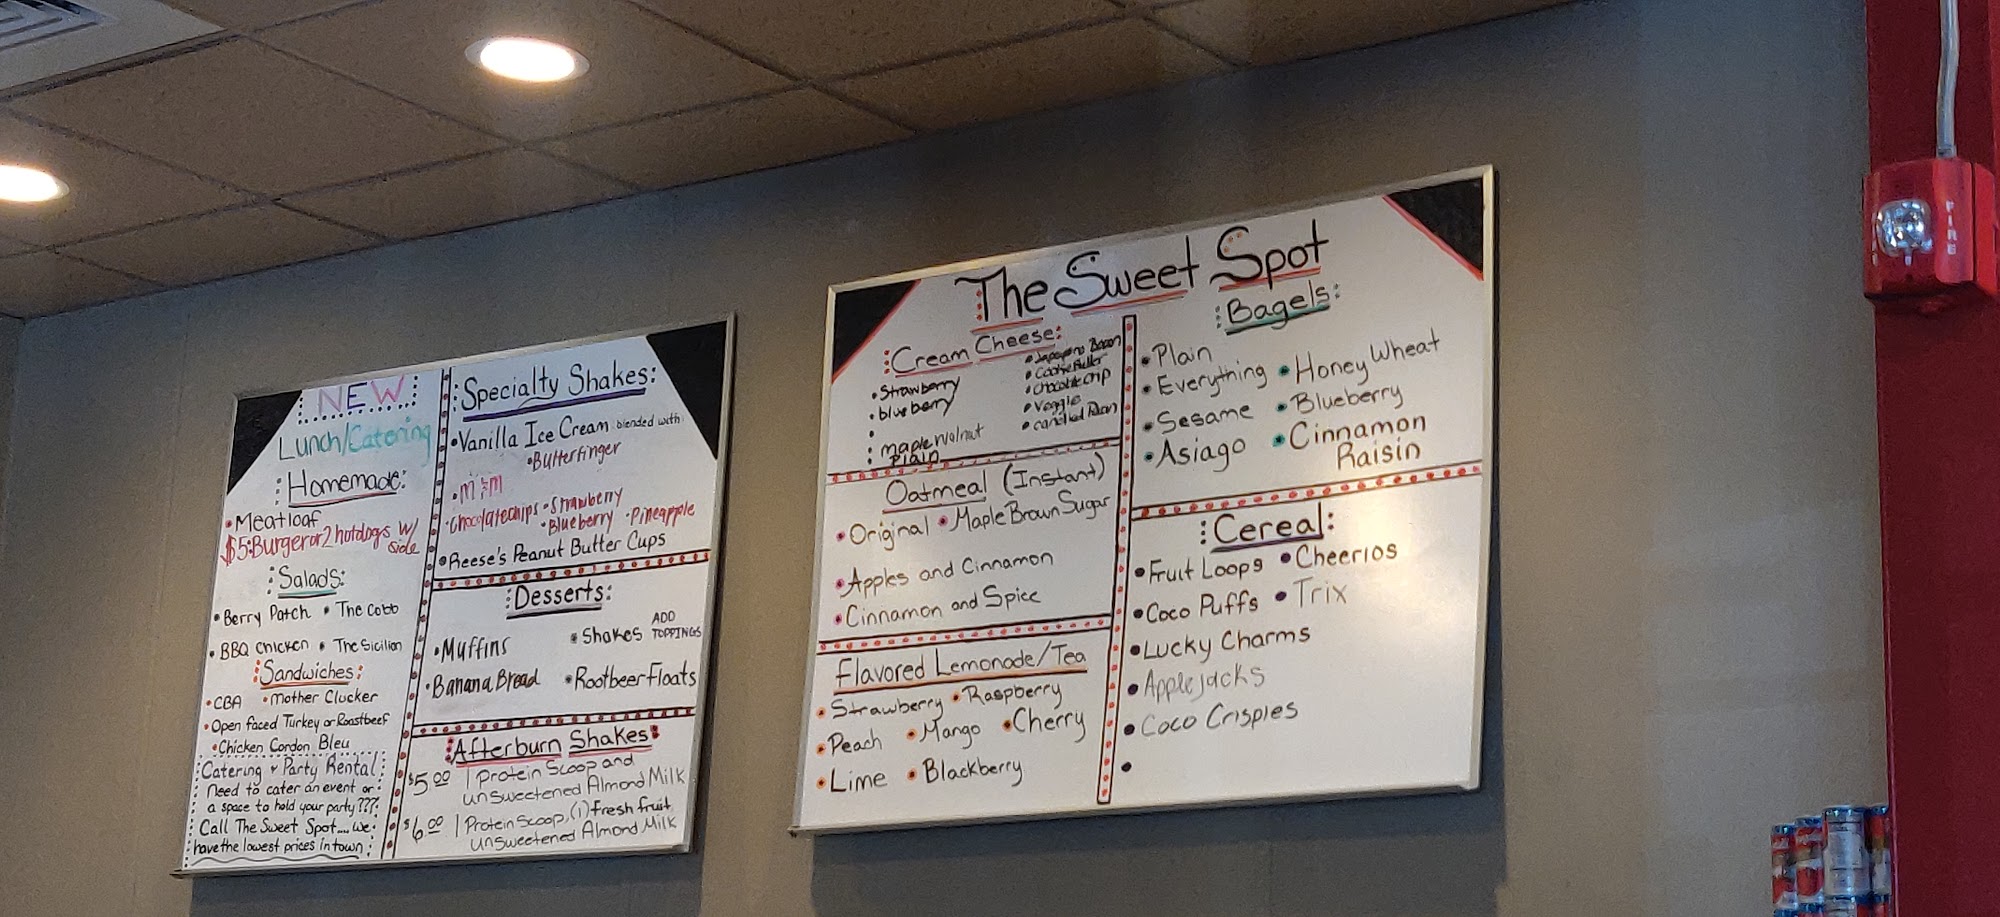 NEW
Lunch/Catering
Homemade:
• Meatloaf
$5:Burger or 2 hotdogs w/
side
Salads:
• Berry Patch • The Cobb
• BBQ Chicken • The Sicilian
Sandwiches:
• CBA • Mother Clucker
• Open faced Turkey or Roastbeef
• Chicken Cordon Bleu
Catering & Party Rental
need to cater an event or
a space to hold your party???
Call The Sweet Spot.... we
have the lowest prices in town
Specialty Shakes:
• Vanilla Ice Cream blended with:
• Butterfinger
• m & m
• Chocolate chips • Strawberry
• Blueberry • Pineapple
• Reese's Peanut Butter Cups
Desserts:
• Muffins • Shakes ADD
TOPPINGS
• Banana Bread • Rootbeer Floats
Afterburn Shakes
$5.00 1 Protein Scoop and
unsweetened Almond Milk
$6.00 1 Protein Scoop, (1) fresh fruit
unsweetened Almond Milk
The Sweet Spot
Cream Cheese:
• Strawberry
• blueberry
• maple walnut
• Plain
• Jalapeno Bacon
• Chocolate chip
• Veggie
Oatmeal (Instant)
• Original • Maple Brown Sugar
• Apples and Cinnamon
• Cinnamon and Spice
Flavored Lemonade/Tea
• Strawberry • Raspberry
• Peach • Mango • Cherry
• Lime • Blackberry
Bagels:
• Plain
• Everything • Honey Wheat
• Sesame • Blueberry
• Asiago • Cinnamon
Raisin
Cereal:
• Fruit Loops • Cheerios
• Coco Puffs • Trix
• Lucky Charms
• Applejacks
• Coco Crispies
FIRE